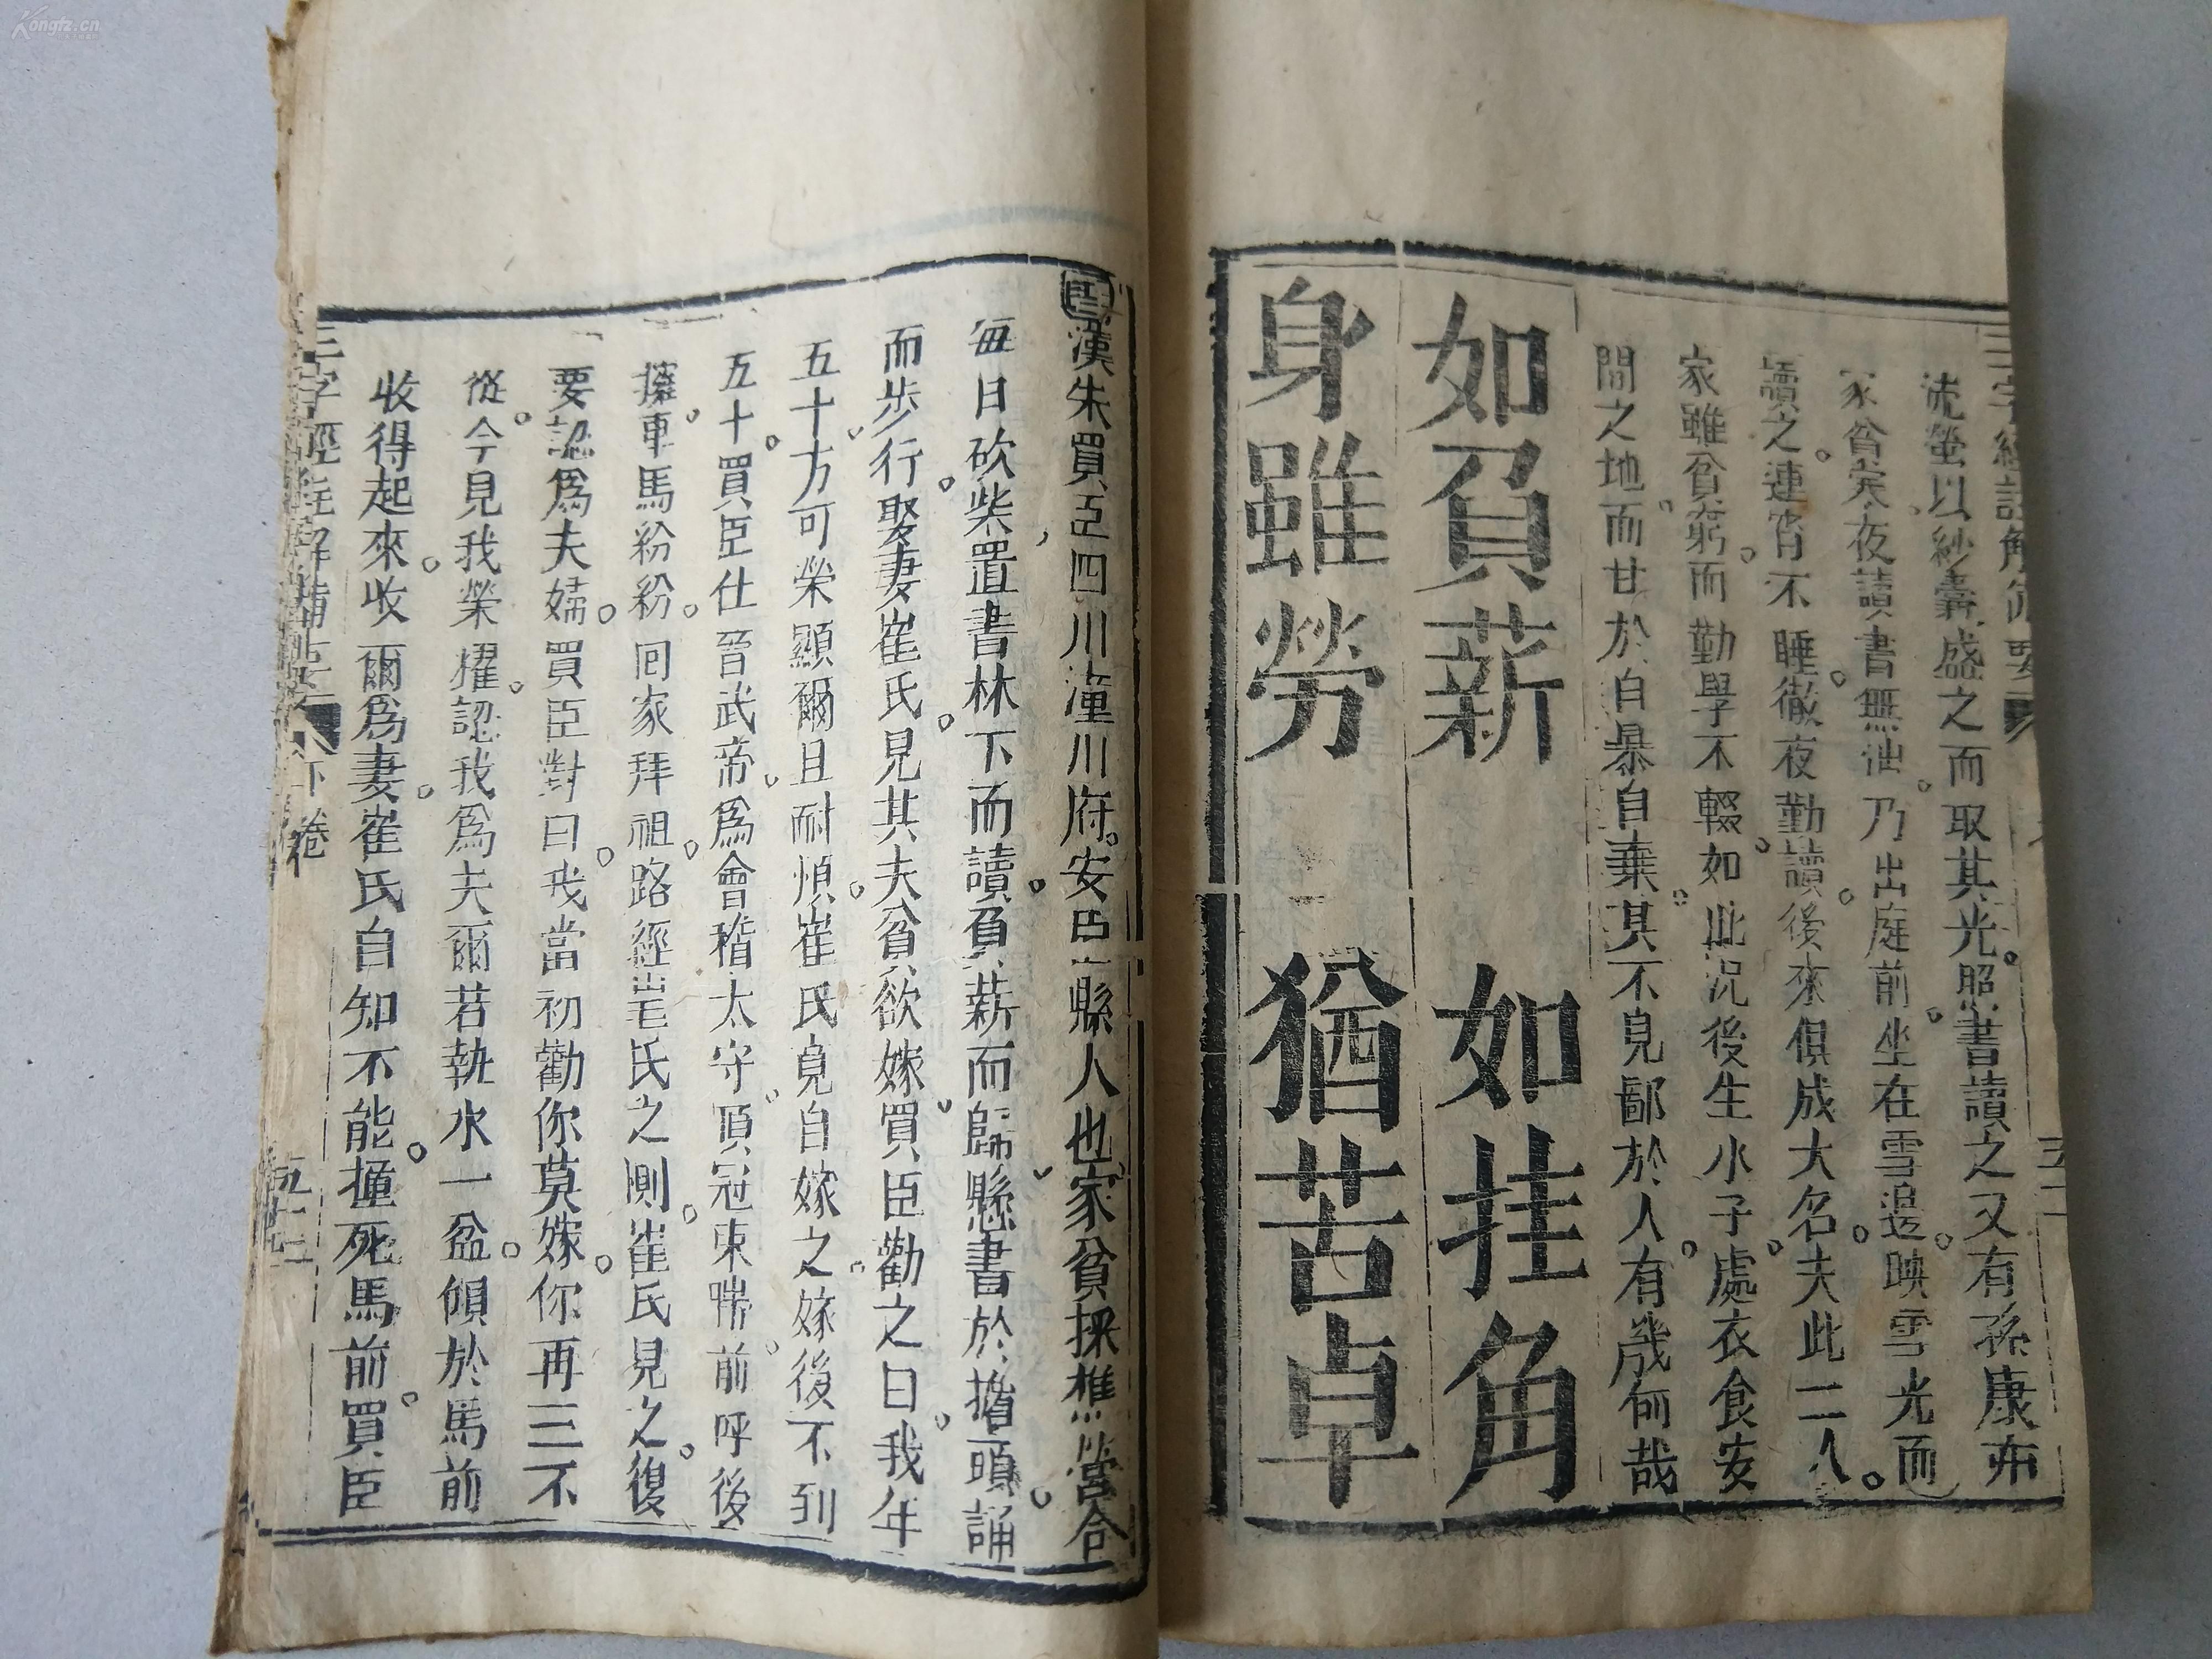 Kongfz.cn
流螢以紗囊盛之而取其光照書讀之又有孫康亦
家貧矣夜讀書無油乃出庭前坐在雪邊映雪光而
讀之連宵不睡徹夜勤讀後來俱成大名夫此二人
家雖貧窮而勤學不輟如此況後生小子處衣食安
閒之地而甘於自暴自棄其不見鄙於人有幾何哉
如負薪 如挂角
身雖勞 猶苦卓
漢朱買臣四川潼川府安居縣人也家貧採樵營合
每日砍柴置書林下而讀負薪而歸懸書於擔頭誦
而步行娶妻崔氏見其夫貧欲嫁買臣勸之曰我年
五十方可榮顯爾且耐煩崔氏竟自嫁之嫁後不到
五十買臣仕晉武帝為會稽太守頂冠束帶前呼後
擁車馬紛紛回家拜祖路經崔氏之側崔氏見之復
要認為夫婦買臣對曰我當初勸你莫嫁你再三不
從今見我榮耀認我為夫爾若執水一盆傾於馬前
收得起來收爾為妻崔氏自知不能撞死馬前買臣
三字經註解備要 下卷